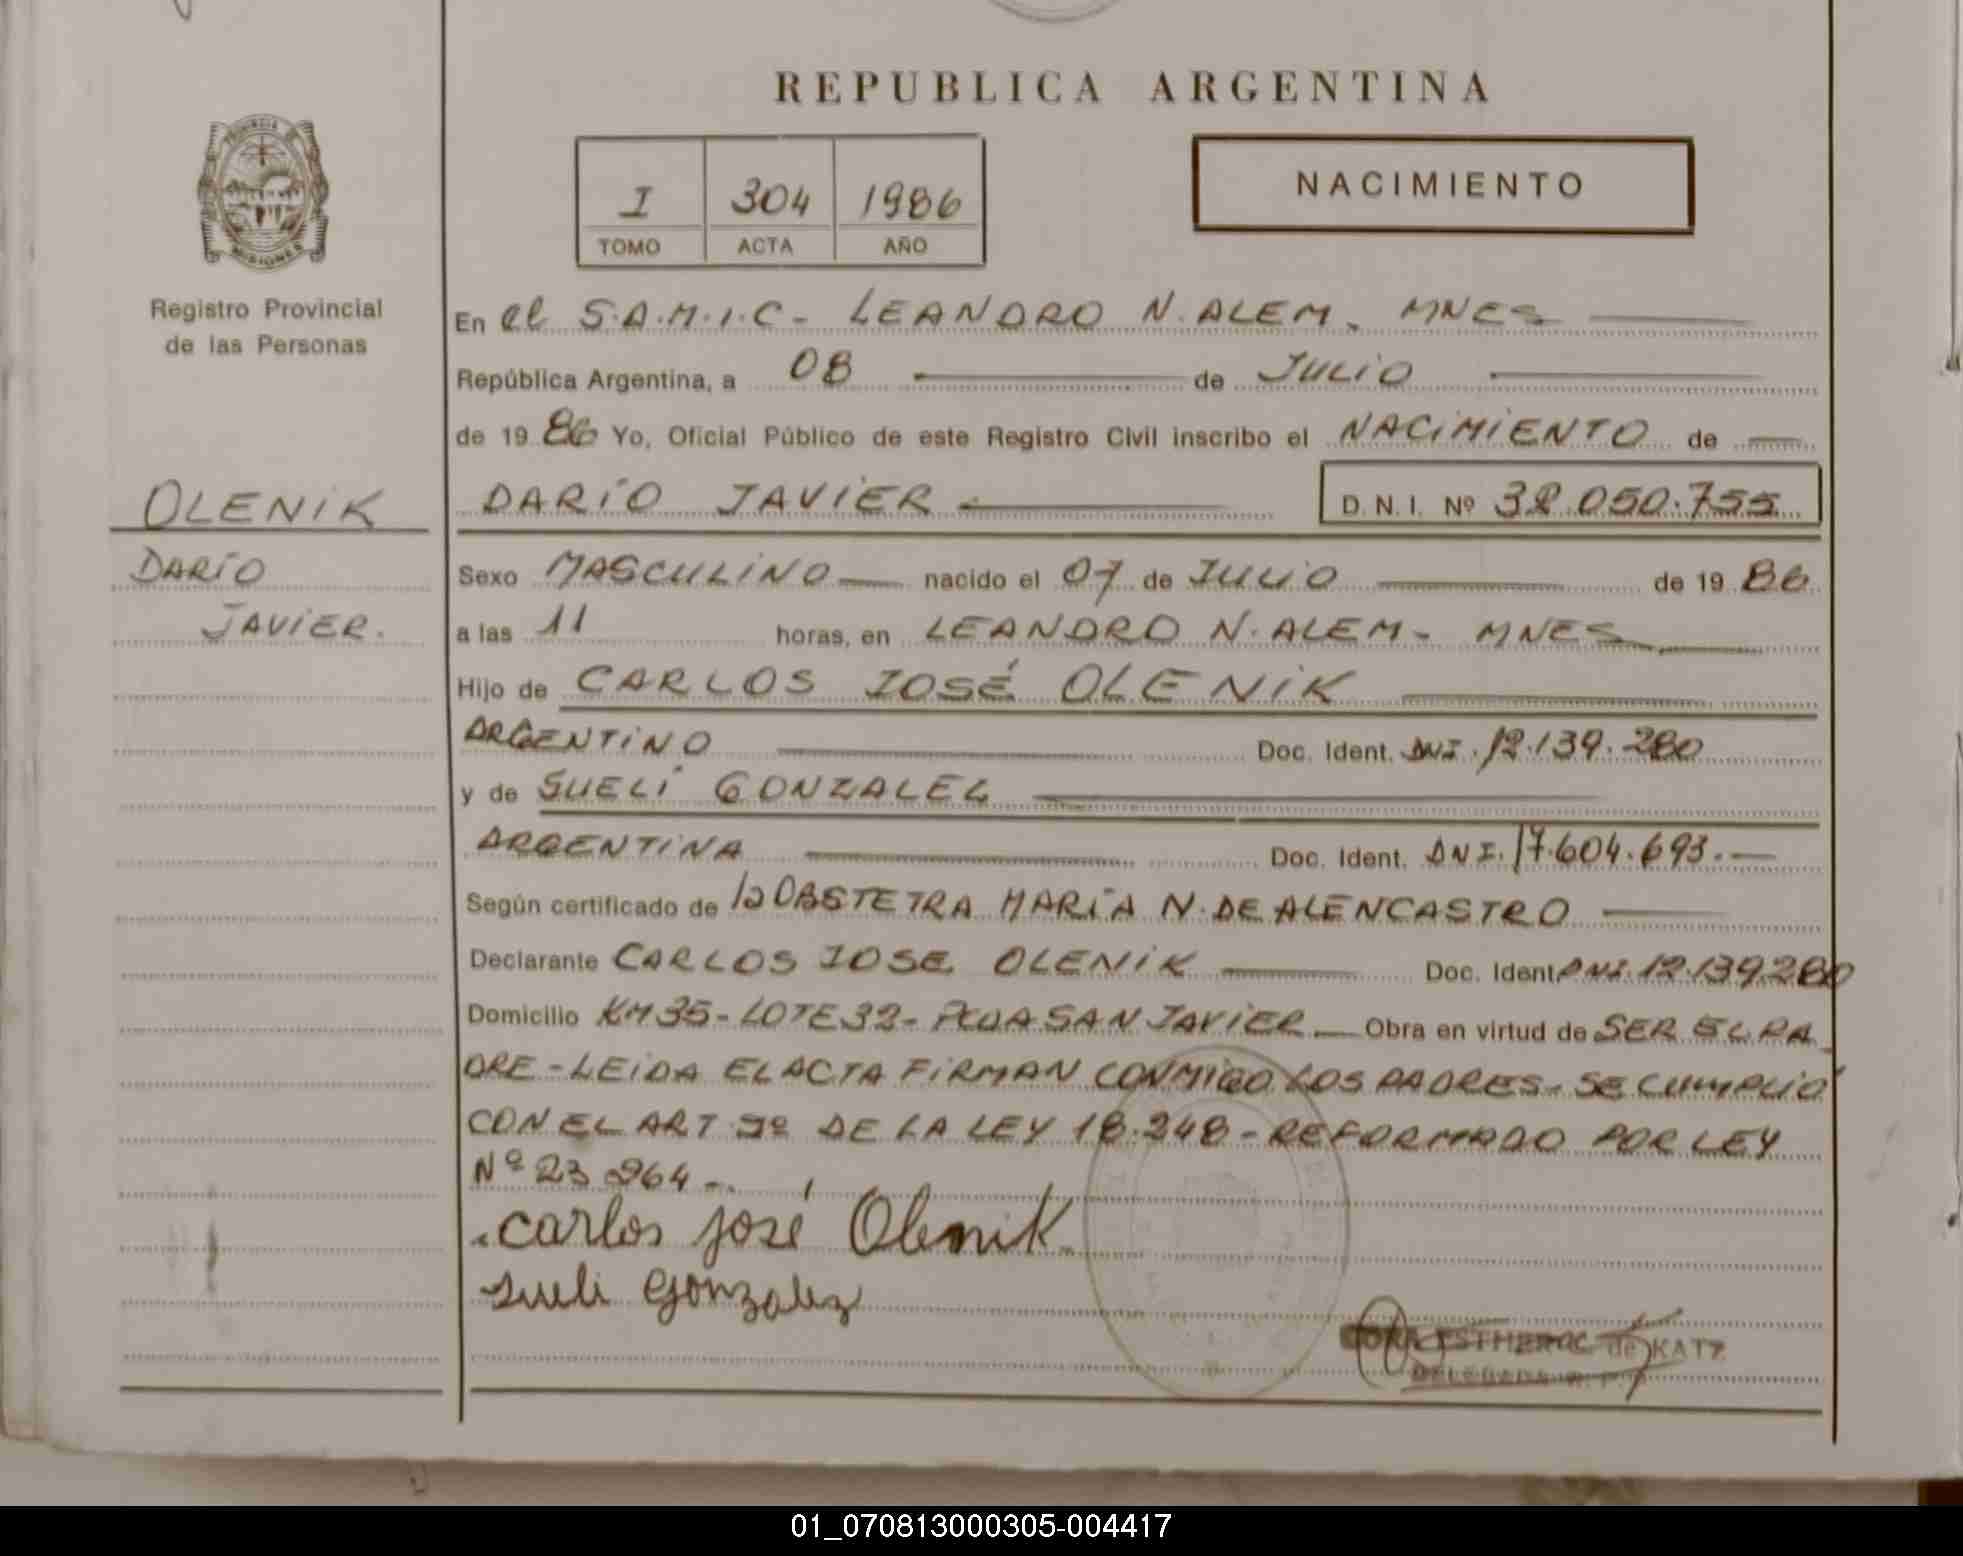 REPUBLICA ARGENTINA
I 304 1986
TOMO ACTA AÑO
NACIMIENTO
PROVINCIA DE
MISIONES
Registro Provincial
de las Personas
OLENIK
DARÍO
JAVIER.
En el S.A.M.I.C- LEANDRO N. ALEM. MNES
República Argentina, a 08 de JULIO
de 19 86 Yo, Oficial Público de este Registro Civil inscribo el NACIMIENTO de
DARÍO JAVIER D. N. I. Nº 32.050.755
Sexo MASCULINO nacido el 07 de JULIO de 19 86
a las 11 horas, en LEANDRO N. ALEM- MNES
Hijo de CARLOS JOSÉ OLENIK
ARGENTINO Doc. Ident. DNI. 12.139.280
y de SUELÍ GONZALEZ
ARGENTINA Doc. Ident. DNI. 17.604.693.-
Según certificado de la OBSTETRA MARÍA N. DE ALENCASTRO
Declarante CARLOS JOSE OLENIK Doc. Ident. DNI. 12.139280
Domicilio KM35-LOTE32-PCDA SAN JAVIER Obra en virtud de SER EL PA
DRE-LEIDA EL ACTA FIRMAN CONMIGO LOS PADRES- SE CUMPLIÓ
CON EL ART. DE LA LEY 18.248-REFORMADO POR LEY
Nº 23.264-.
carlos josé Olenik
Sueli Gonzalez
de KATZ
01_070813000305-004417